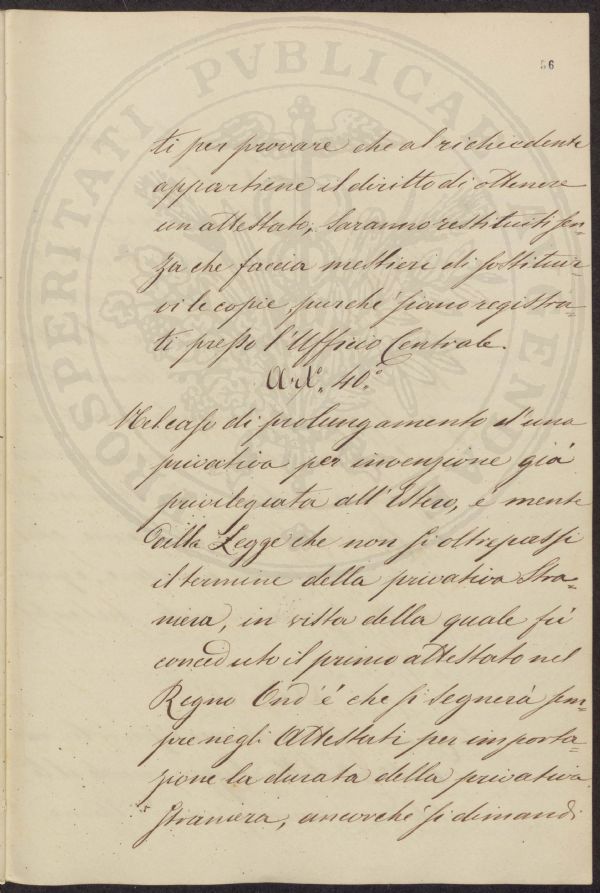 56
ti per provare che al richiedente
appartiene il diritto di ottenere
un attestato, saranno restituiti sen=
za che faccia mestieri di sostituir=
vi le copie, purchè siano registra=
ti presso l'Ufficio Centrale.
Art.° 40.°
Nel caso di prolungamento d'una
privativa per invenzione già
privilegiata all'Estero, è mente
della Legge che non si oltrepassi
il termine della privativa Stra=
niera, in vista della quale fù
conceduto il primo attestato nel
Regno Ond'è che si segnerà sem=
pre negli Attestati per importa=
zione la durata della privativa
straniera, ancorchè si dimandi
PROSPERITATI PVBLICAE AVGENDAE